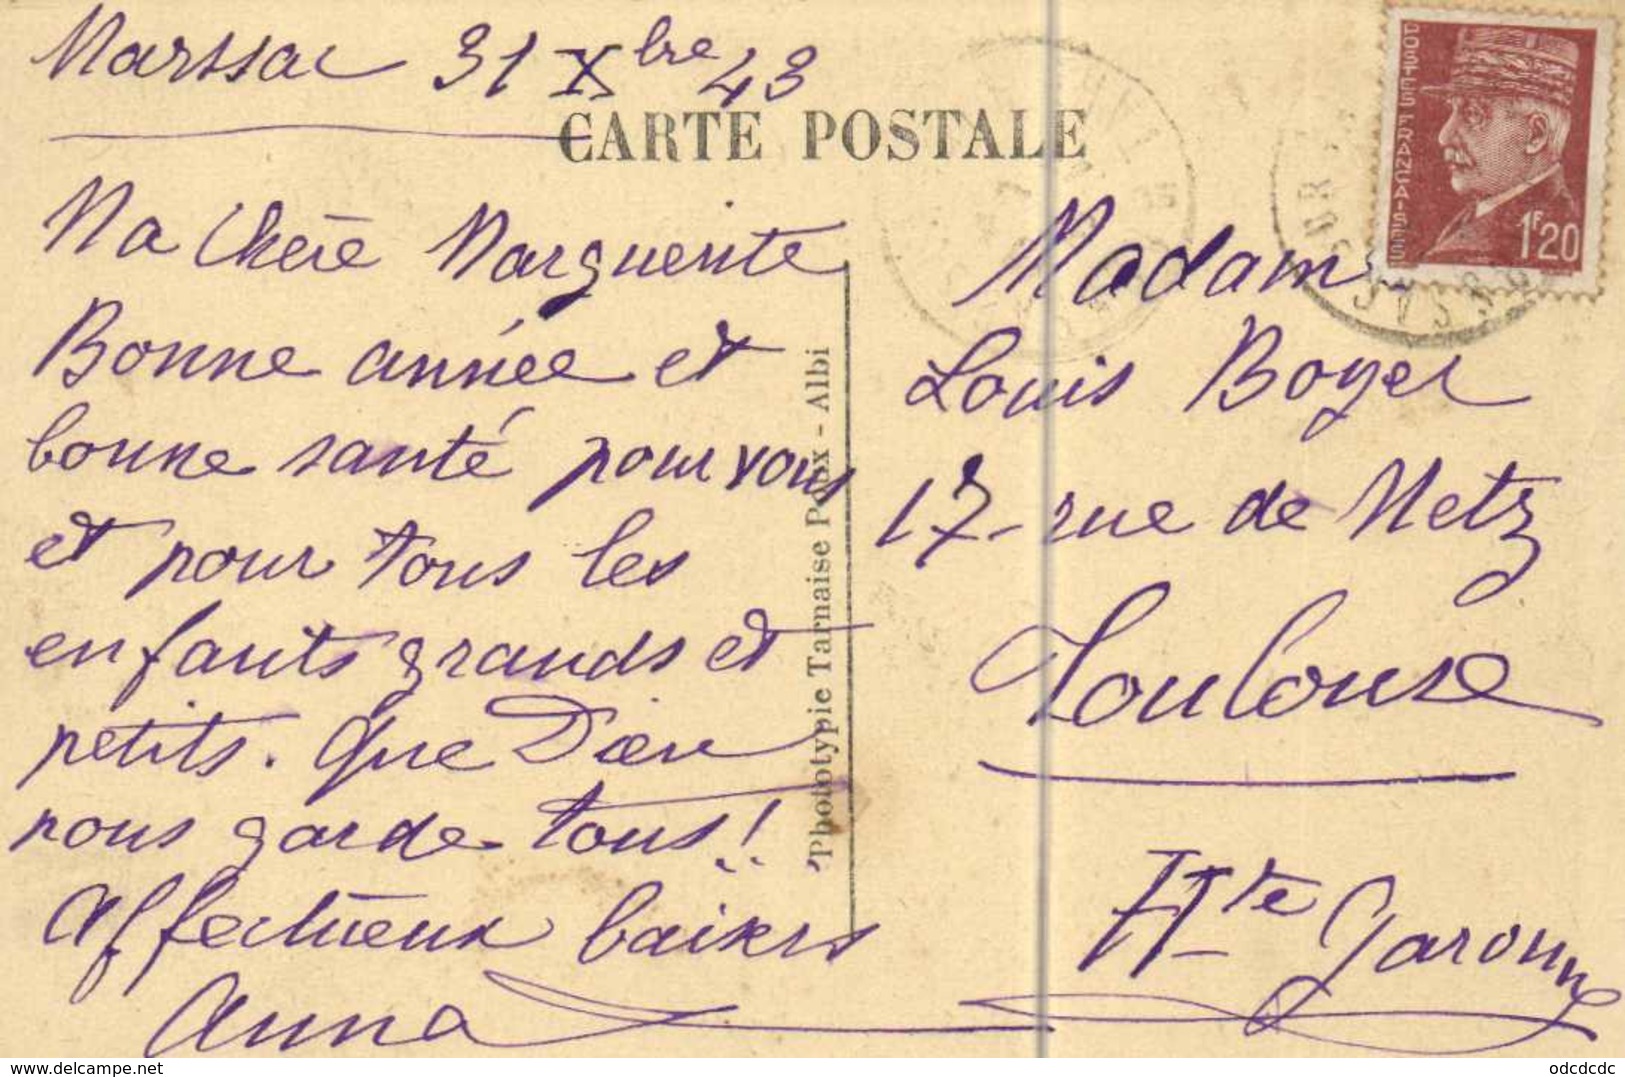 Marssac 31 Xbre 43
CARTE POSTALE
Ma Chère Marguerite
Bonne année et
bonne santé pour vous
et pour tous les
enfants grands et
petits. Que Dieu
nous garde tous!!
Affectueux baisers
Anna
Phototypie Tarnaise Poux - Albi
POSTES FRANÇAISES
1F20
Madame
Louis Boyer
17 rue de Metz
Toulouse
Hte Garonne
delcampe.net
odcdcdc